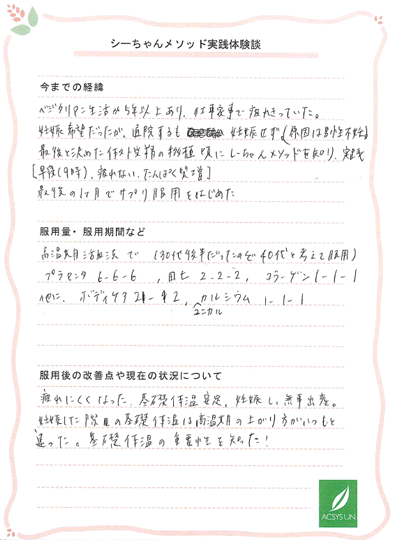 シーちゃんメソッド実践体験談
今までの経緯
ベジタリアン生活が5年以上あり、仕事家事で疲れきっていた。
妊娠希望だったが、通院するも 妊娠せず。(原因は男性不妊)
最後と決めた 移植 頃にシーちゃんメソッドを知り、実践
[早寝(9時)、疲れない、たんぱく質増]
最後の1ヶ月でサプリ服用をはじめた
服用量・服用期間など
高温期活法で (30代後半だったので40代と考えて服用)
プラセンタ 6-6-6 , 田七 2-2-2, コラーゲン 1-1-1
他に、ボディケア 2 - 2, カルシウム 1-1-1
ユニカル
服用後の改善点や現在の状況について
疲れにくくなった、基礎体温安定、妊娠し、無事出産。
妊娠した 目の基礎体温は高温期の上がり方がいつもと
違った。基礎体温の重要性を知った!
ACSYSUN